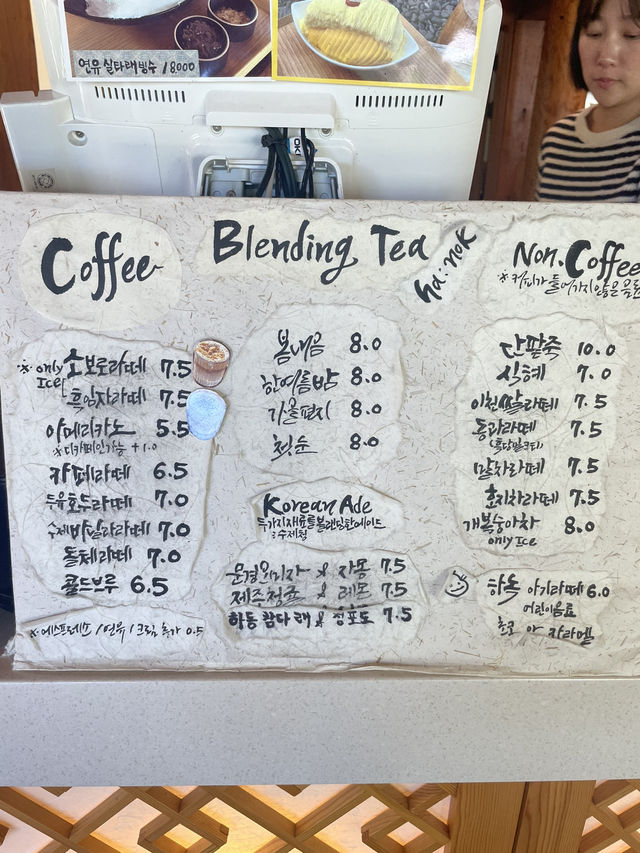 연유실타래빙수 18,000
Coffee
*only Ice! 소보로라떼 7.5
흑임자라떼 7.5
아메리카노 5.5
*디카페인가능 +1.0
카페라떼 6.5
두유호두라떼 7.0
수제바닐라라떼 7.0
돌체라떼 7.0
콜드브루 6.5
*에스프레소/연유/크림 추가 0.5
Blending Tea
ha:nok
봄내음 8.0
한여름밤 8.0
가을편지 8.0
첫눈 8.0
Korean Ade
두가지재료를블랜딩한에이드
:수제청
문경오미자 & 자몽 7.5
제주청귤 & 레몬 7.5
함동참다래 & 청포도 7.5
Non.Coffee
*커피가들어가지않은음료
단팥죽 10.0
식혜 7.0
이천쌀라떼 7.5
통과라떼 7.5
말차라떼 7.5
호지차라떼 7.5
개복숭아차 8.0
only Ice
하녹 아기라떼 6.0
어린이음료
초코 or 카라멜